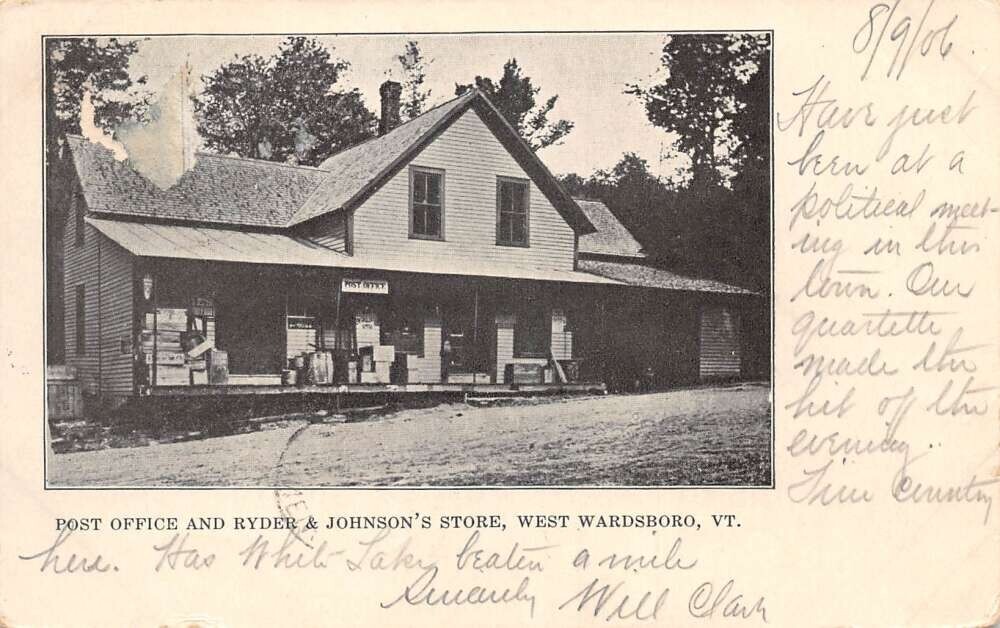 8/9/06.
Have just
been at a
political meet-
ing in this
town. Our
quartette
made the
hit of the
evening.
Fine country
POST OFFICE
POST OFFICE AND RYDER & JOHNSON'S STORE, WEST WARDSBORO, VT.
here. Has White Lake beaten a mile
Sincerely Will Clark